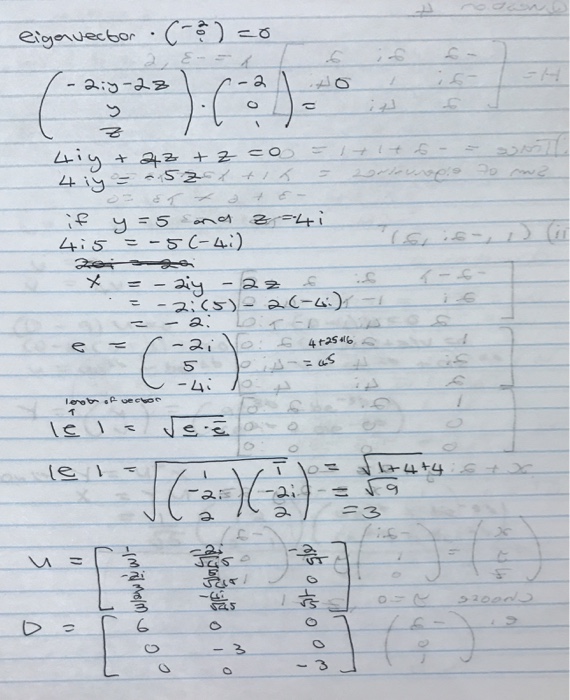 eigenvector · (-2 0 1) = 0
(-2iy-2z y z) · (-2 0 1) = 0
4iy + 4z + z = 0
4iy = -5z
if y = 5 and z = -4i
4i5 = -5(-4i)
x = -2iy - 2z
= -2i(5) - 2(-4i)
= -2i
e = (-2i 5 -4i) 4+25+16 = 45
length of vector
|e| = √e·ē
|e| = √(1 -2i 2)(1 -2i 2) = √1+4+4
= √9
= 3
U = [1/3 -2i/√45 -2/√5
-2i/3 5/√45 0
2/3 -4i/√45 1/√5]
D = [6 0 0
0 -3 0
0 0 -3]